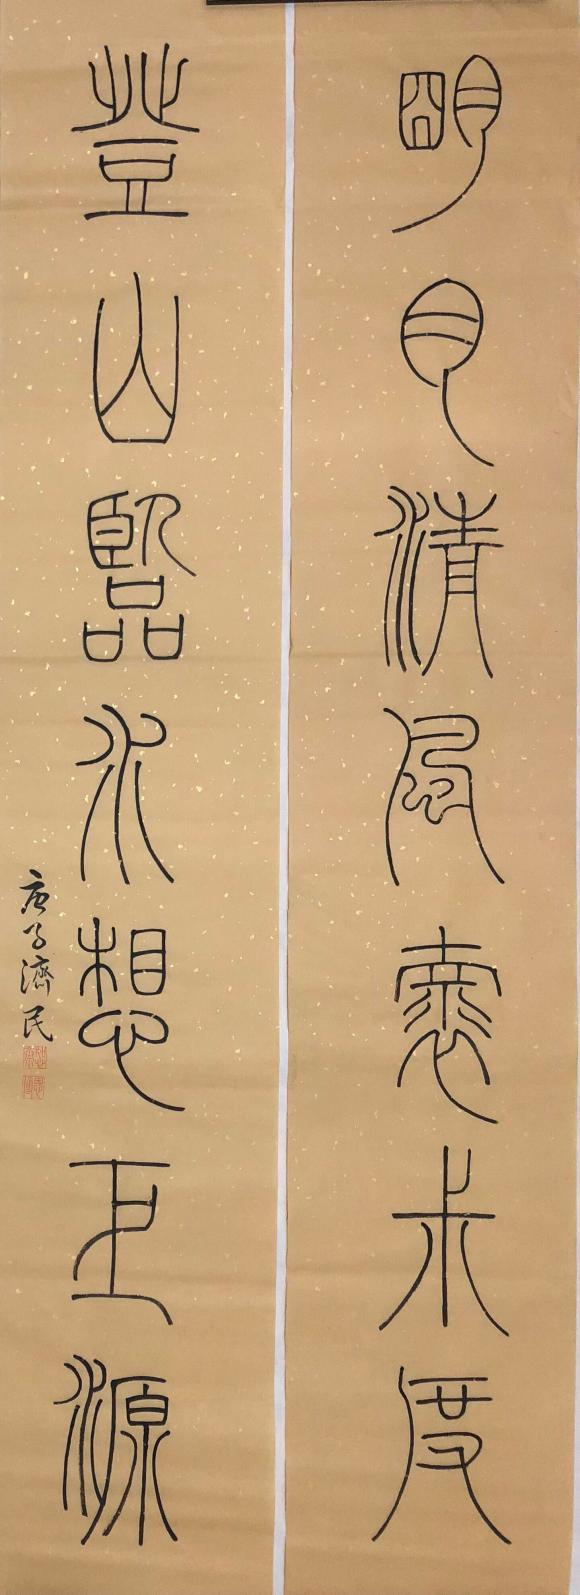 明月清風褱尗度
登山臨水想巨源
庚子濟民